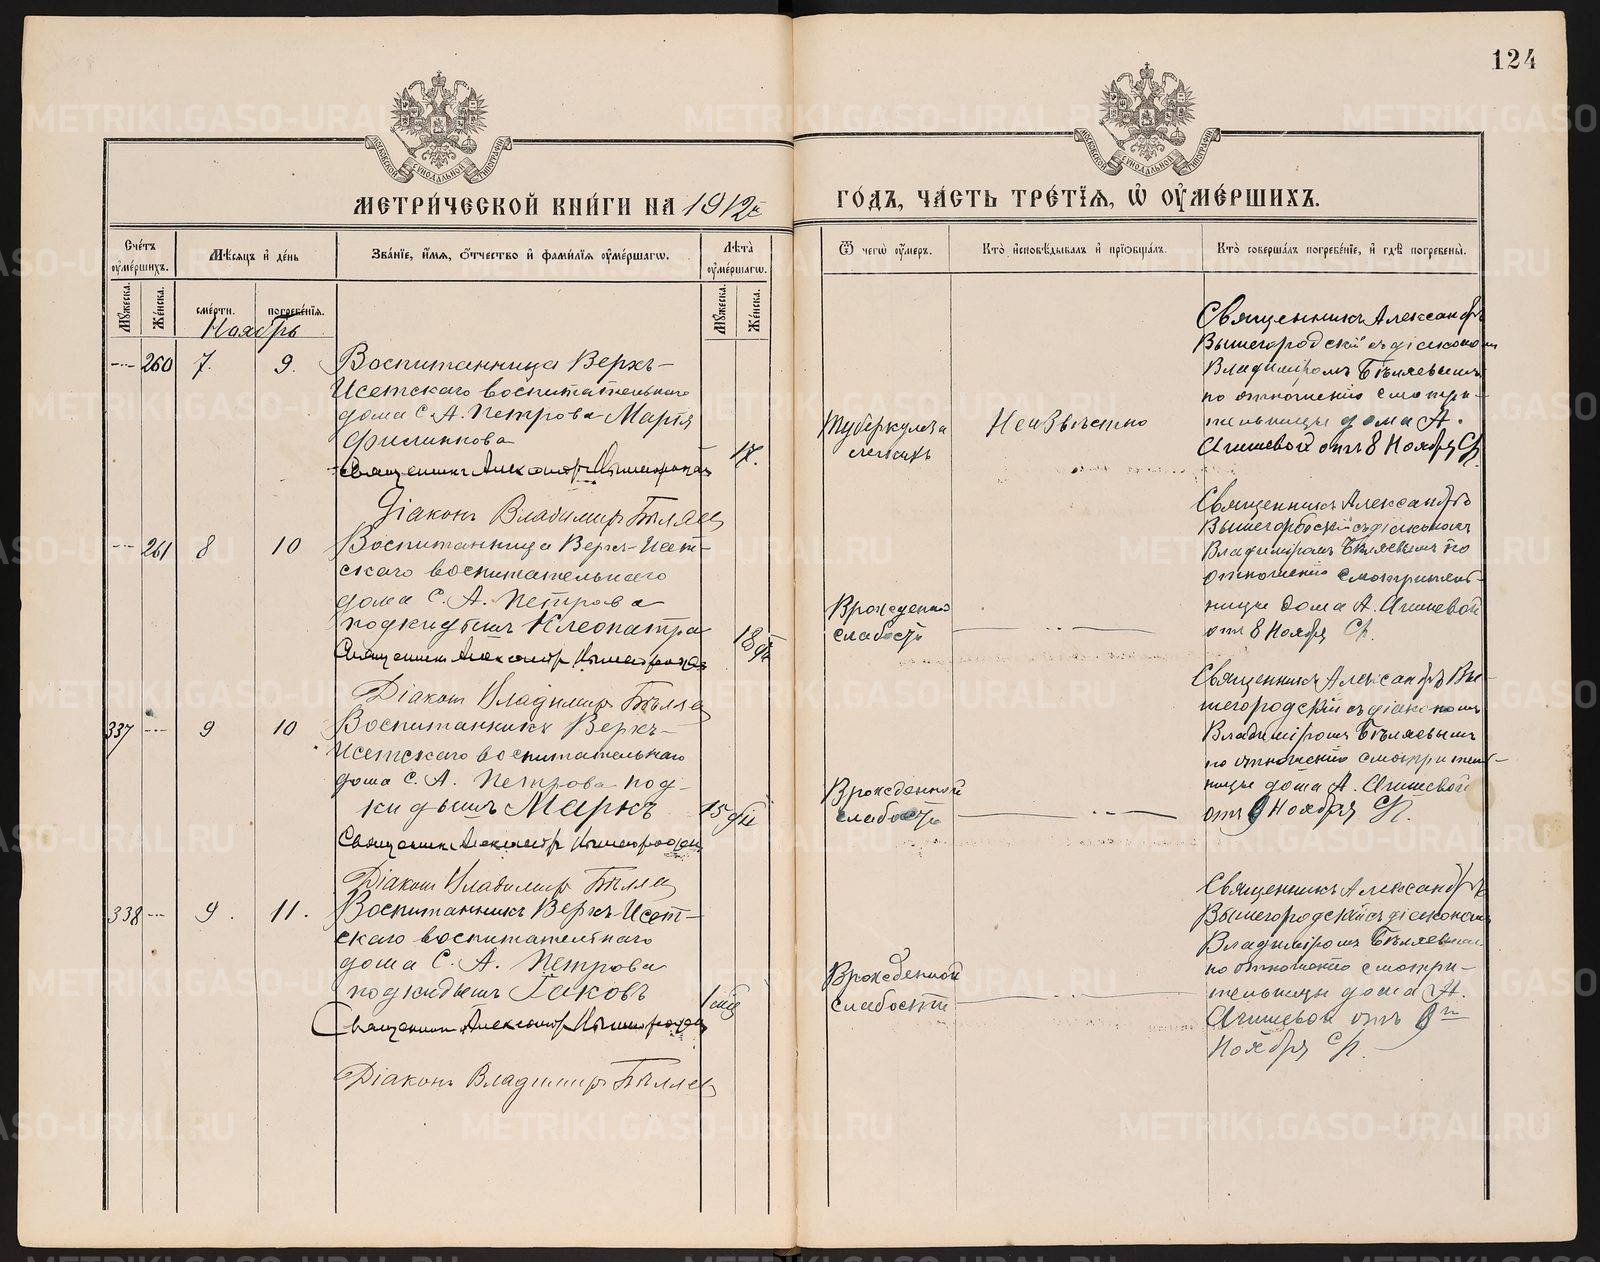 124
МЕТРИЧЕСКОЙ КНИГИ НА 1912 й
ГОДЪ, ЧАСТЬ ТРЕТІЯ, Ѡ ОУМЕРШИХЪ.
Счетъ оумершихъ.
Мѣсяцъ и день
Званіе, имя, отчество и фамилія оумершагѡ.
Лѣта оумершагѡ.
Ѿ чегѡ оумеръ.
Кто исповѣдывалъ и пріобщалъ.
Кто совершалъ погребеніе, и гдѣ погребены.
Мужеска.
Женска.
смерти.
погребенія.
Мужеска.
Женска.
Ноябрь
260 7. 9.
Воспитанница Верхъ-
Исетскаго воспитательнаго
дома С. А. Петрова Марія
Филиппова
17.
Священникъ Александръ Вышегородскій
Діаконъ Владимиръ Бѣляев
Туберкулеза
легкихъ
Неизвѣстно
Священникъ Александръ
Вышегородскій съ діакономъ
Владиміромъ Бѣляевымъ
по отношенію смотри-
тельницы дома А.
Агишевой отъ 8 Ноября Ср.
261 8 10
Воспитанница Верхъ-Исет-
скаго воспитательнаго
дома С. А. Петрова
подкидышъ Клеопатра
18 дн
Священникъ Александръ Вышегородскій
Діаконъ Владимиръ Бѣляев
Врожденной
слабости
Священникъ Александръ
Вышегородскій съ діакономъ
Владиміромъ Бѣляевымъ по
отношенію смотритель-
ницы дома А. Агишевой
отъ 8 Ноября Ср.
337 9 10
Воспитанникъ Верхъ-
Исетскаго воспитательнаго
дома С. А. Петрова под-
кидышъ Маркъ
15 дн
Священникъ Александръ Вышегородскій
Діаконъ Владимиръ Бѣляев
Врожденной
слабости
Священникъ Александръ Вы-
шегородскій съ діакономъ
Владиміромъ Бѣляевымъ
по отношенію смотритель-
ницы дома А. Агишевой
отъ 9 Ноября Ср.
338 9. 11.
Воспитанникъ Верхъ-Исет-
скаго воспитательнаго
дома С. А. Петрова
подкидышъ Іаковъ
1
Священникъ Александръ Вышегородскій
Діаконъ Владимиръ Бѣляев
Врожденной
слабости
Священникъ Александръ
Вышегородскій съ діакономъ
Владиміромъ Бѣляевымъ
по отношенію смотри-
тельницы дома А.
Агишевой отъ 9 го
Ноября Ср.
METRIKI.GASO-URAL.RU